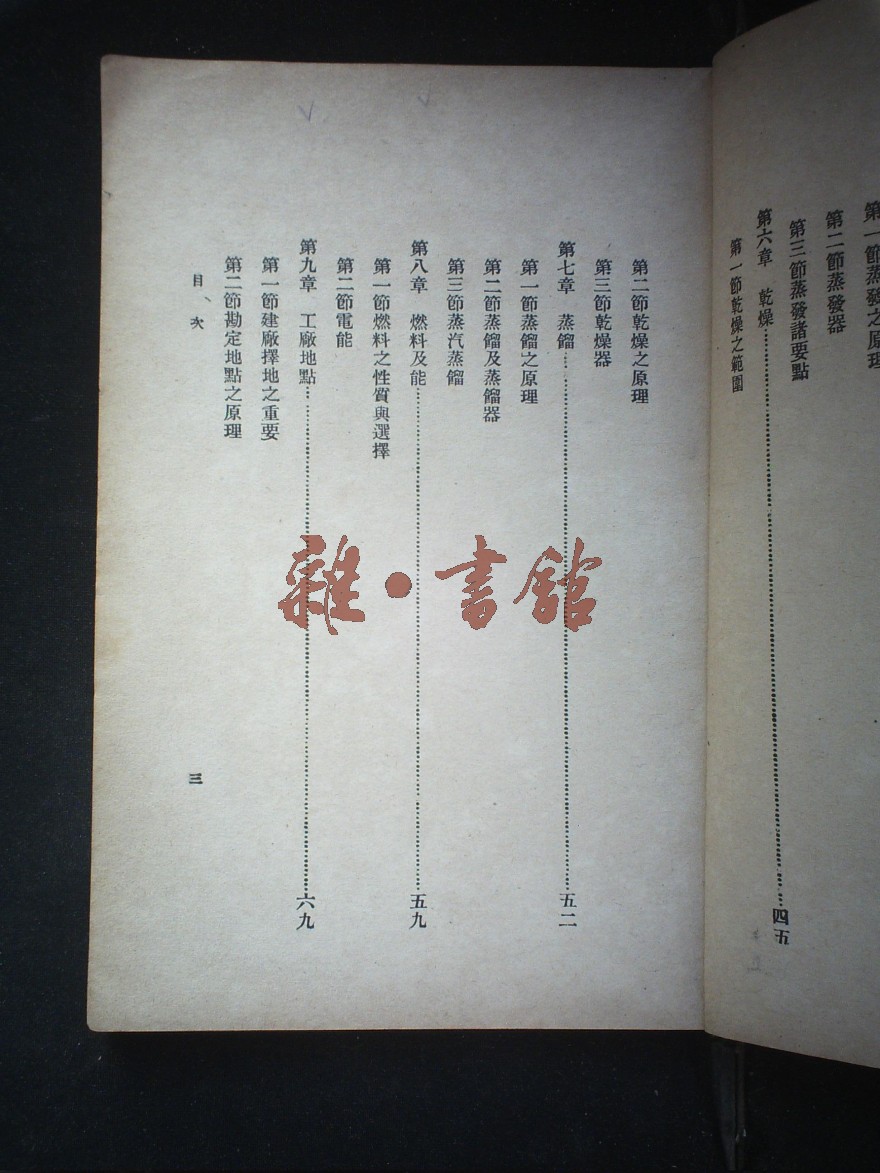 第一節蒸發之原理
第二節蒸發器
第三節蒸發諸要點
第六章　乾燥……四五
第一節乾燥之範圍
第二節乾燥之原理
第三節乾燥器
第七章　蒸餾……五二
第一節蒸餾之原理
第二節蒸餾及蒸餾器
第三節蒸汽蒸餾
第八章　燃料及能……五九
第一節燃料之性質與選擇
第二節電能
第九章　工廠地點……六九
第一節建廠擇地之重要
第二節勘定地點之原理
目、次
三
雜·書館